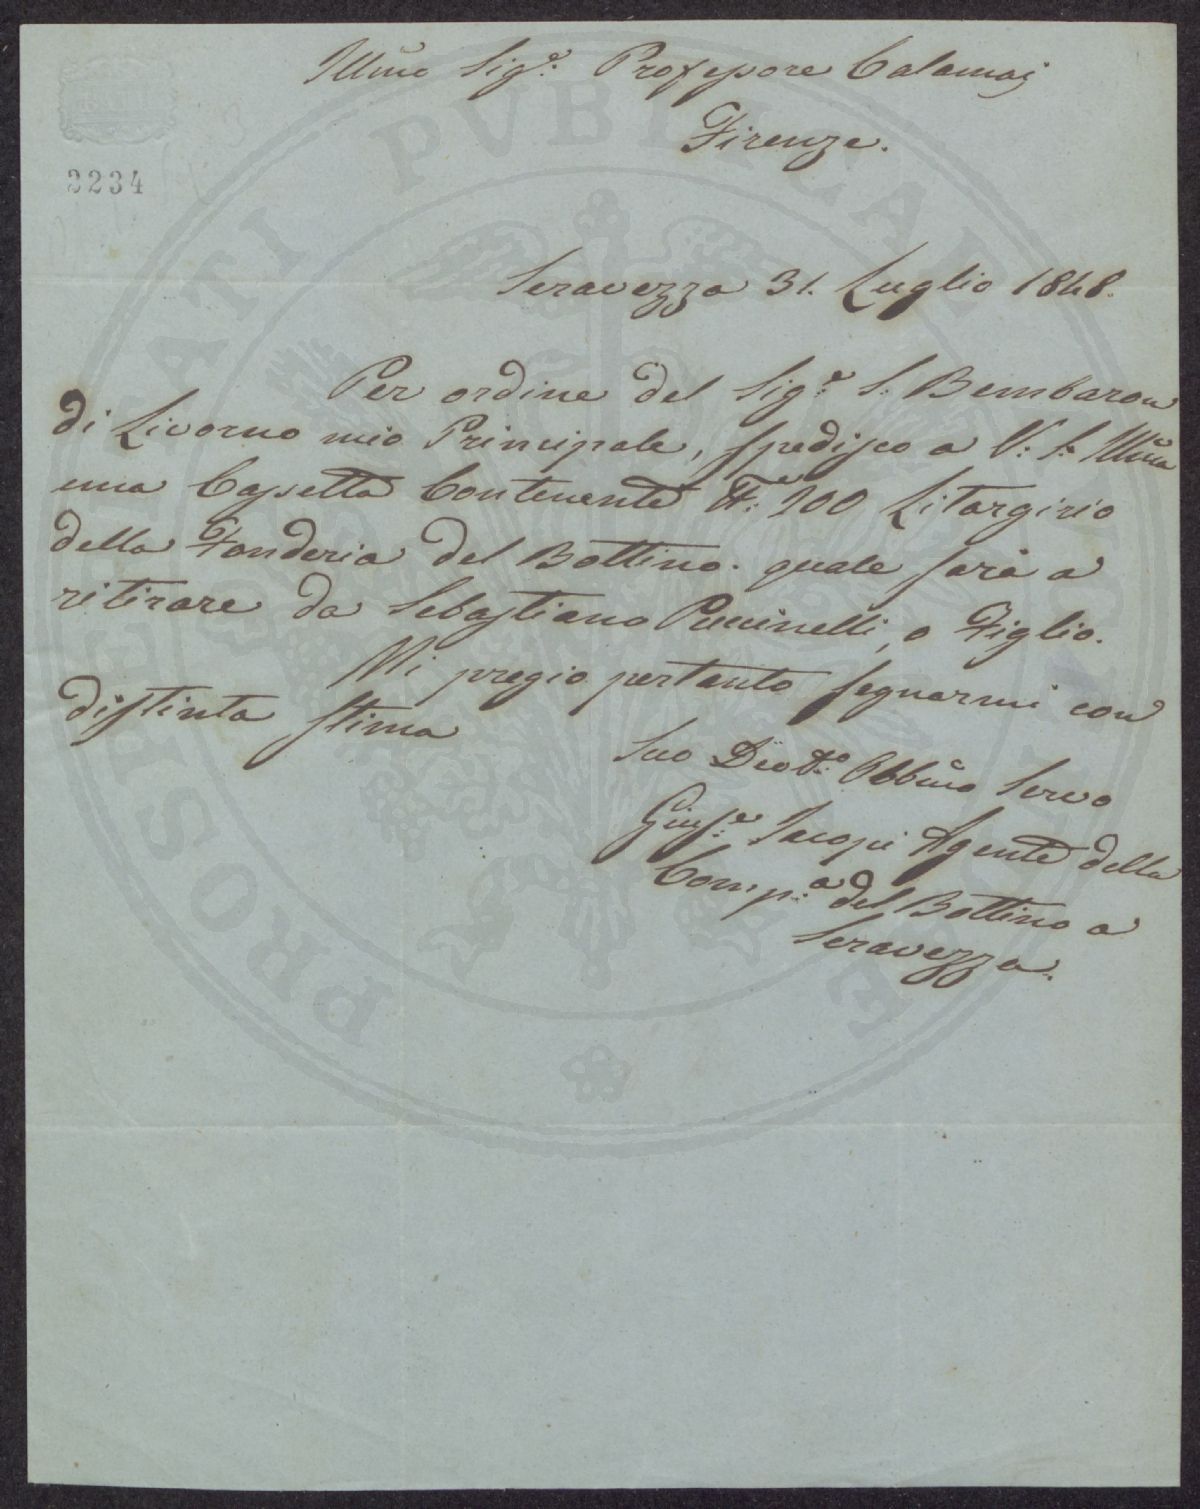 Illmo Sigre. Professore Calamaj
Firenze.
2234
Seravezza 31. Luglio 1848.
Per ordine del Sigre. S. Bembaron
di Livorno mio Principale, spedisco a V: S: Illma
una Cassetta Contenente 100 Litargirio
della Fonderia del Bottino. quale farà a
ritirare da Sebastiano Puccinelli, o Figlio.
Mi pregio pertanto segnarmi con
distinta stima
Suo Obbmo Servo
Giuse. Jacopi Agente della
Compa. del Bottino a
Seravezza.